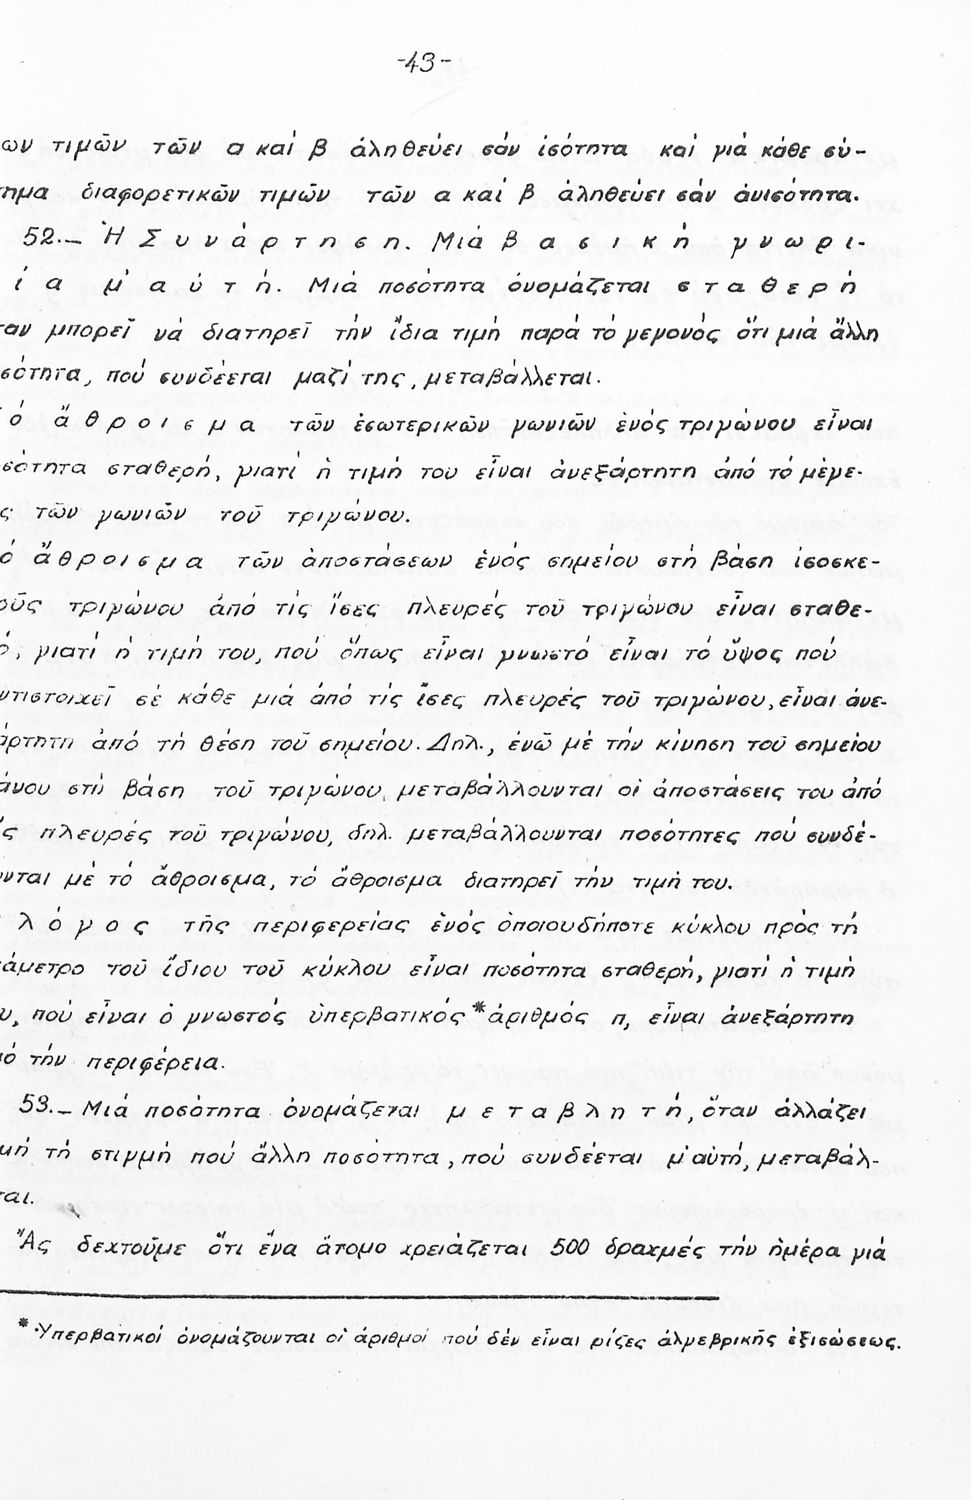 -43-
ων τιμῶν τῶν α καί β ἀληθεύει σάν ἰσότητα καί γιά κάθε σύ-
τημα διαφορετικῶν τιμῶν τῶν α καί β ἀληθεύει σάν ἀνισότητα.
52.— Ἡ Σ υ ν ά ρ τ η σ η. Μιά β α σ ι κ ή γ ν ω ρ ι-
ί α μ' α ὐ τ ή. Μιά ποσότητα ὀνομάζεται σ τ α θ ε ρ ή
ταν μπορεῖ νά διατηρεῖ τήν ἴδια τιμή παρά τό γεγονός ὅτι μιά ἄλλη
σότητα, πού συνδέεται μαζί της, μεταβάλλεται.
ό ἄ θ ρ ο ι σ μ α τῶν ἐσωτερικῶν γωνιῶν ἑνός τριγώνου εἶναι
σότητα σταθερή, γιατί ἡ τιμή του εἶναι ἀνεξάρτητη ἀπό τό μέγε-
ς τῶν γωνιῶν τοῦ τριγώνου.
ό ἄ θ ρ ο ι σ μ α τῶν ἀποστάσεων ἑνός σημείου στή βάση ἰσοσκε-
οῦς τριγώνου ἀπό τίς ἴσες πλευρές τοῦ τριγώνου εἶναι σταθε-
ό, γιατί ἡ τιμή του, πού ὅπως εἶναι γνωστό εἶναι τό ὕψος πού
ντιστοιχεῖ σέ κάθε μιά ἀπό τίς ἴσες πλευρές τοῦ τριγώνου, εἶναι ἀνε-
άρτητη ἀπό τή θέση τοῦ σημείου. Δηλ., ἐνῶ μέ τήν κίνηση τοῦ σημείου
άνου στή βάση τοῦ τριγώνου, μεταβάλλουνται οἱ ἀποστάσεις του ἀπό
ίς πλευρές τοῦ τριγώνου, δηλ. μεταβάλλουνται ποσότητες πού συνδέ-
υνται μέ τό ἄθροισμα, τό ἄθροισμα διατηρεῖ τήν τιμή του.
λ ό γ ο ς τῆς περιφερείας ἑνός ὁποιουδήποτε κύκλου πρός τή
άμετρο τοῦ ἴδιου τοῦ κύκλου εἶναι ποσότητα σταθερή, γιατί ἡ τιμή
υ, πού εἶναι ὁ γνωστός ὑπερβατικός* ἀριθμός π, εἶναι ἀνεξάρτητη
πό τήν περιφέρεια.
53.— Μιά ποσότητα ὀνομάζεται μ ε τ α β λ η τ ή, ὅταν ἀλλάζει
μή τή στιγμή πού ἄλλη ποσότητα, πού συνδέεται μ' αὐτή, μεταβάλ-
ται.
Ἄς δεχτοῦμε ὅτι ἕνα ἄτομο χρειάζεται 500 δραχμές τήν ἡμέρα γιά
* Ὑπερβατικοί ὀνομάζουνται οἱ ἀριθμοί πού δέν εἶναι ρίζες ἀλγεβρικῆς ἐξισώσεως.